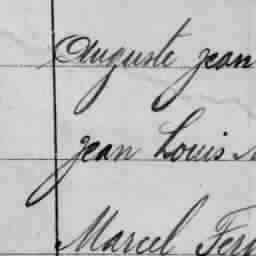 Auguste Jean
Jean Louis
Marcel